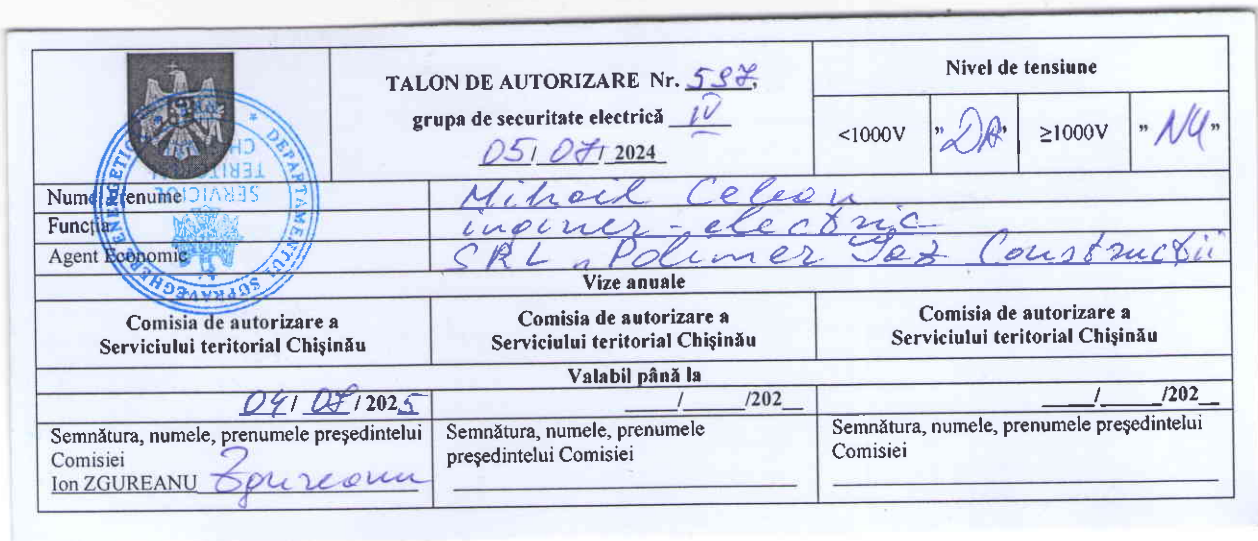 TALON DE AUTORIZARE Nr. 597,
grupa de securitate electrică IV
05/ 07/ 2024
Nivel de tensiune
<1000V "DA" ≥1000V "NU"
Numele, prenume Mihail
Funcția inginer-electric
Agent Economic SRL „Polimer Gaz Construcții
Vize anuale
Comisia de autorizare a
Serviciului teritorial Chișinău
Comisia de autorizare a
Serviciului teritorial Chișinău
Comisia de autorizare a
Serviciului teritorial Chișinău
Valabil până la
04/ 07/ 2025
___/ ___/202__
___/ ___/202__
Semnătura, numele, prenumele președintelui
Comisiei
Ion ZGUREANU Zgureanu
Semnătura, numele, prenumele
președintelui Comisiei
Semnătura, numele, prenumele președintelui
Comisiei
DEPARTAMENTUL SUPRAVEGHERE ENERGETIC
SERVICIUL
TERITORIAL